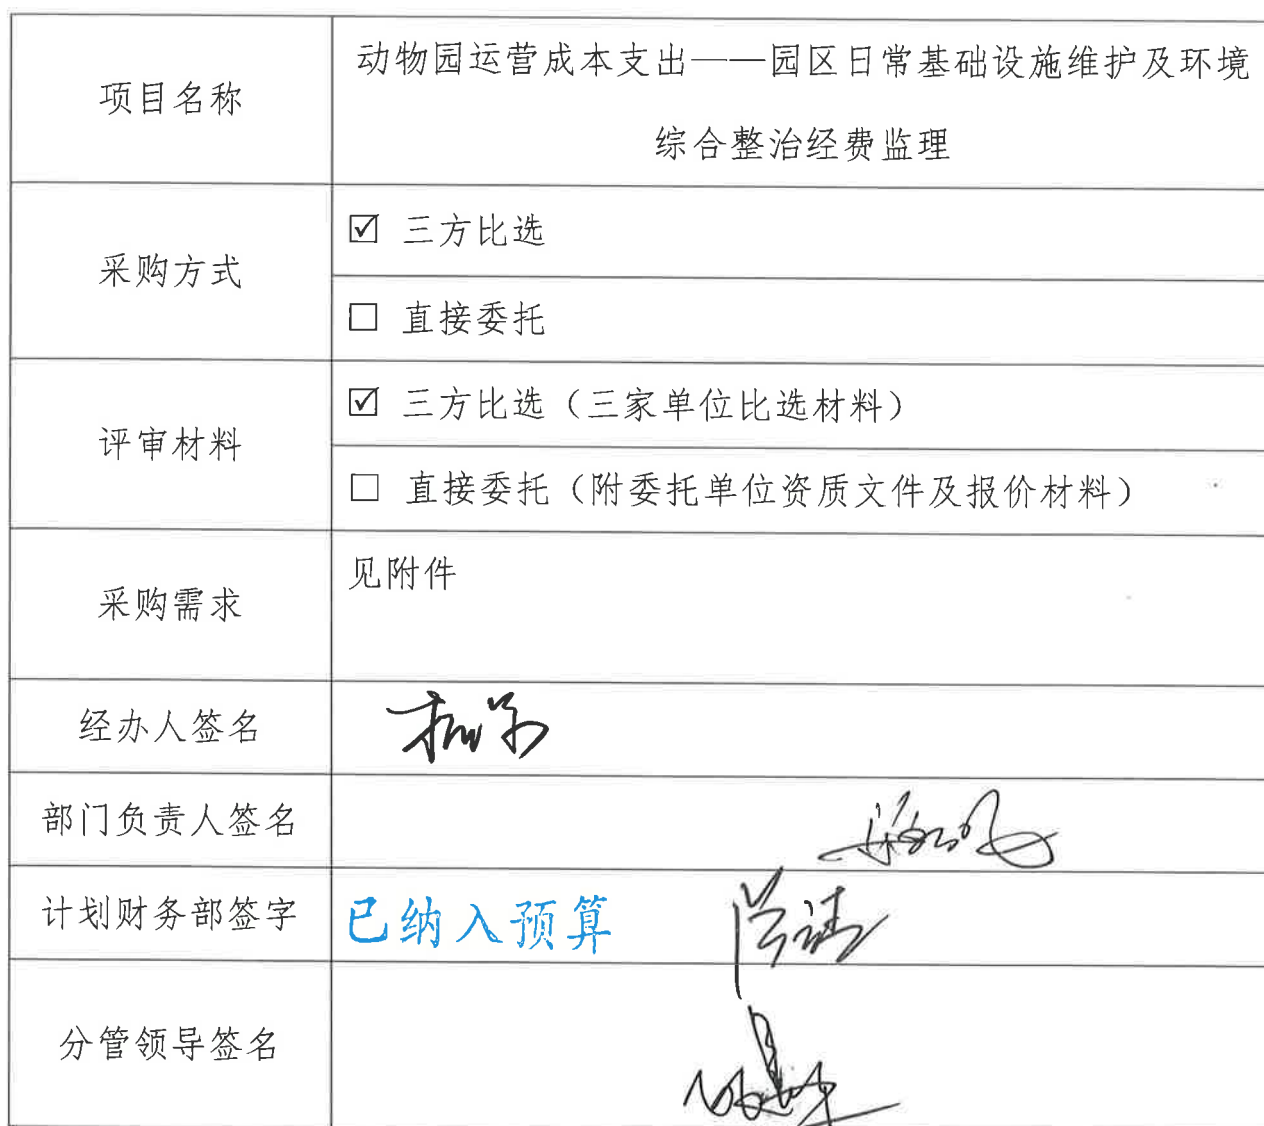 项目名称
动物园运营成本支出——园区日常基础设施维护及环境
综合整治经费监理
采购方式
☑ 三方比选
☐ 直接委托
评审材料
☑ 三方比选（三家单位比选材料）
☐ 直接委托（附委托单位资质文件及报价材料）
采购需求
见附件
经办人签名
部门负责人签名
计划财务部签字
已纳入预算
分管领导签名